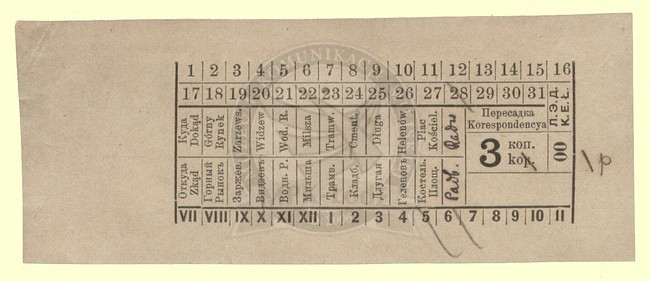 1 2 3 4 5 6 7 8 9 10 11 12 13 14 15 16
17 18 19 20 21 22 23 24 25 26 27 28 29 30 31
Куда
Dokąd
Górny
Rynek
Zarzews.
Widzew.
Wod. R.
Milsza
Tramw.
Cment.
Długa
Helenów.
Plac
Kościel.
Radw
Пересадка
Korespondencya
3 коп.
kop.
Л.Э.Д.
K.E.Ł.
00
Откуда
Zkąd
Горный
Рынокъ
Заржев.
Видзевъ
Водн. Р.
Мильша
Трамв.
Кладб.
Длугая
Геленовъ
Костель.
Площ.
Радв.
VII VIII IX X XI XII 1 2 3 4 5 6 7 8 9 10 11